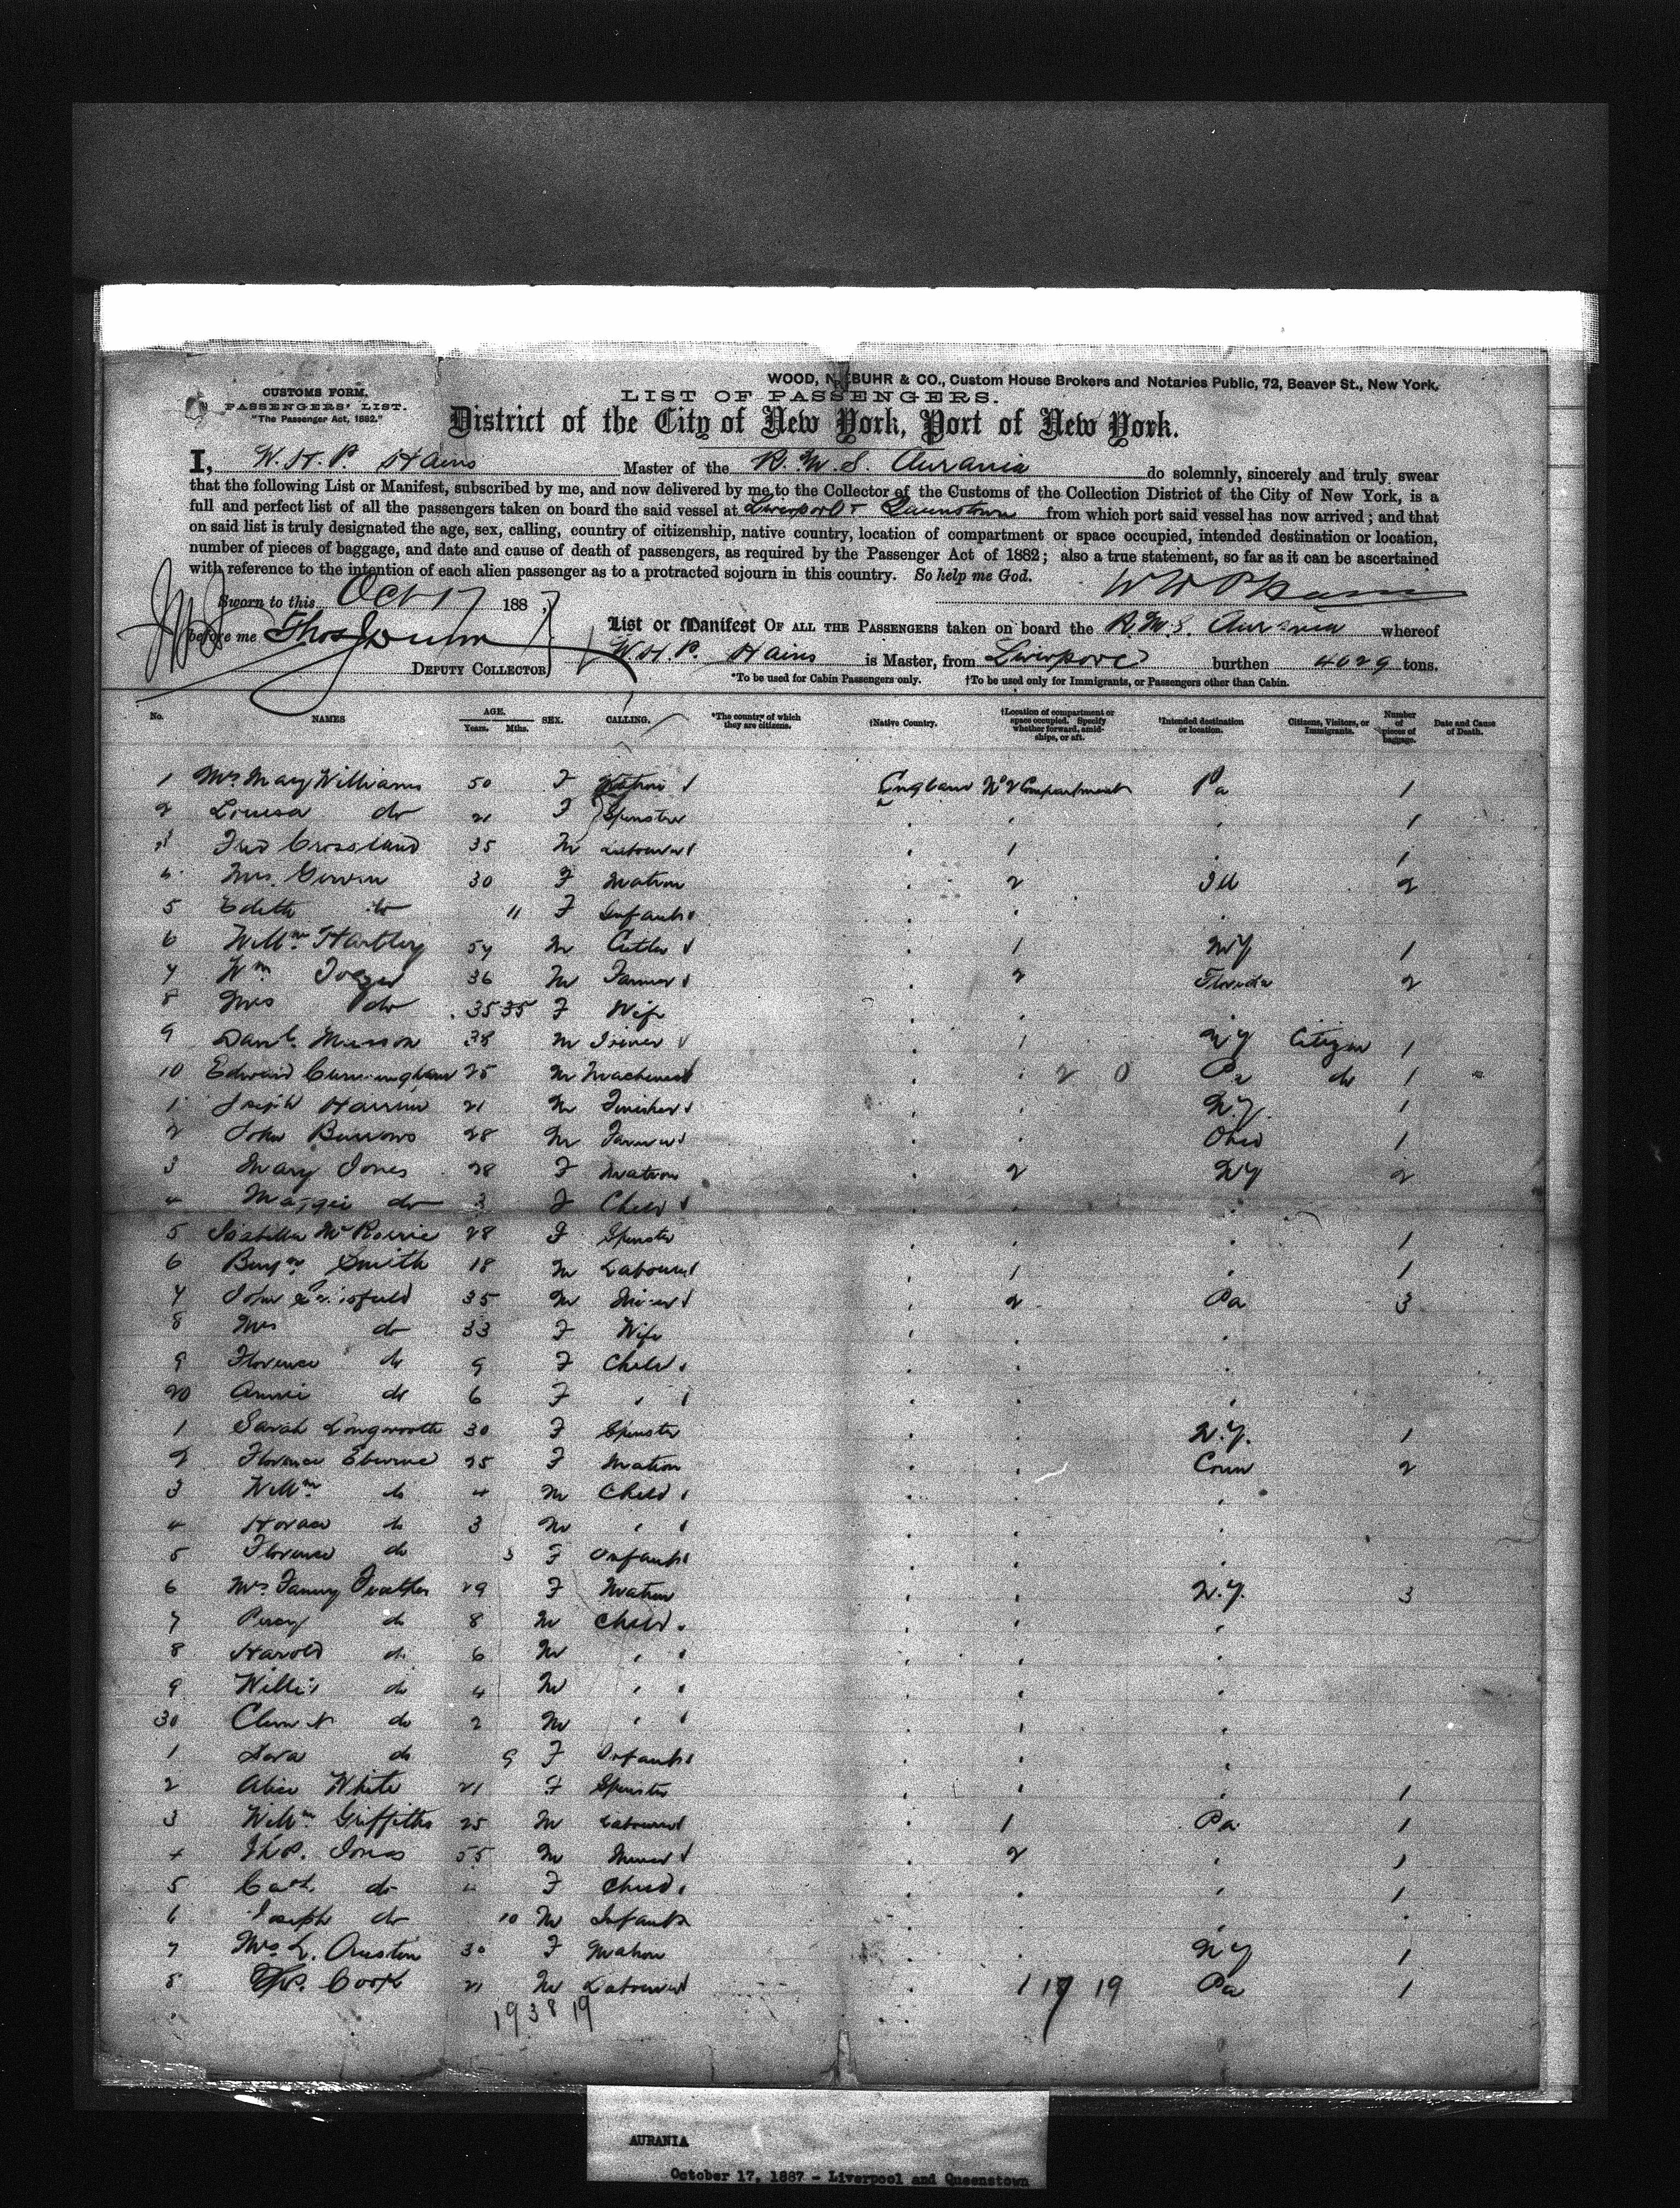 WOOD, N BUHR & CO., Custom House Brokers and Notaries Public, 72, Beaver St., New York.
CUSTOMS FORM.
PASSENGERS' LIST.
"The Passenger Act, 1882."
LIST OF PASSENGERS.
District of the City of New York, Port of New York.
I, W. H. P. Hains Master of the R. M. S. Aurania do solemnly, sincerely and truly swear
that the following List or Manifest, subscribed by me, and now delivered by me to the Collector of the Customs of the Collection District of the City of New York, is a
full and perfect list of all the passengers taken on board the said vessel at Liverpool & Queenstown from which port said vessel has now arrived; and that
on said list is truly designated the age, sex, calling, country of citizenship, native country, location of compartment or space occupied, intended destination or location,
number of pieces of baggage, and date and cause of death of passengers, as required by the Passenger Act of 1882; also a true statement, so far as it can be ascertained
with reference to the intention of each alien passenger as to a protracted sojourn in this country. So help me God.
Sworn to this Oct 17 1887
before me Thos Dunn
DEPUTY COLLECTOR
List or Manifest OF ALL THE PASSENGERS taken on board the R.M.S. Aurania whereof
W.H.P. Hains is Master, from Liverpool burthen 4029 tons.
*To be used for Cabin Passengers only. †To be used only for Immigrants, or Passengers other than Cabin.
No. NAMES AGE. Years. Mths. SEX. CALLING. *The country of which they are citizens. †Native Country. †Location of compartment or space occupied. Specify whether forward, amidships, or aft. †Intended destination or location. Citizens, Visitors, or Immigrants. Number of pieces of baggage. Date and Cause of Death.
1 Mrs Mary Williams 50 F Matron England No 2 Compartment Pa 1
2 Louisa do 21 F Spinster 1
3 Fred Crossland 35 M Labourer 1 1
4 Mrs. 30 F Matron 2 Ill 2
5 Edith do 11 F Infant
6 Willm Hartley 54 M Cutler 1 NY 1
7 Wm 36 M Farmer 2 Florida 2
8 Mrs do 35 35 F Wife
9 Danl. Musson 38 M Joiner 1 NY Citizen 1
10 Edward Cunningham 25 M Machinist 2 0 Pa do 1
1 Joseph 21 M Finisher N.Y. 1
2 John Burrows 28 M Farmer Ohio 1
3 Mary Jones 28 F Matron 2 NY 2
4 Maggie do 3 F Child
5 Isabella 28 F Spinster 1
6 Benjn Smith 18 M Labourer 1 1
7 John 35 M Miner 2 Pa 3
8 Mrs do 33 F Wife
9 Florence do 9 F Child
20 Annie do 6 F "
1 Sarah Longworth 30 F Spinster N.Y. 1
2 Florence Eburne 25 F Matron Conn 2
3 Willm do 4 M Child
4 Horace do 3 M "
5 Florence do 3 F Infant
6 Mrs Fanny Feather 29 F Matron N.Y. 3
7 Percy do 8 M Child
8 Harold do 6 M "
9 Willie do 4 M "
30 Clement do 2 M "
1 do 9 F Infant
2 Alice White 21 F Spinster 1
3 Willm Griffiths 25 M Labourer 1 Pa 1
4 Thos. Jones 55 M Miner 2 1
5 Cath. do 4 F Child 1
6 Joseph do 10 M Infant
7 Mrs L. Austin 30 F Matron NY 1
8 Thos. Cook 21 M Labourer 1 17 19 Pa 1
19 38 19
AURANIA
October 17, 1887 - Liverpool and Queenstown